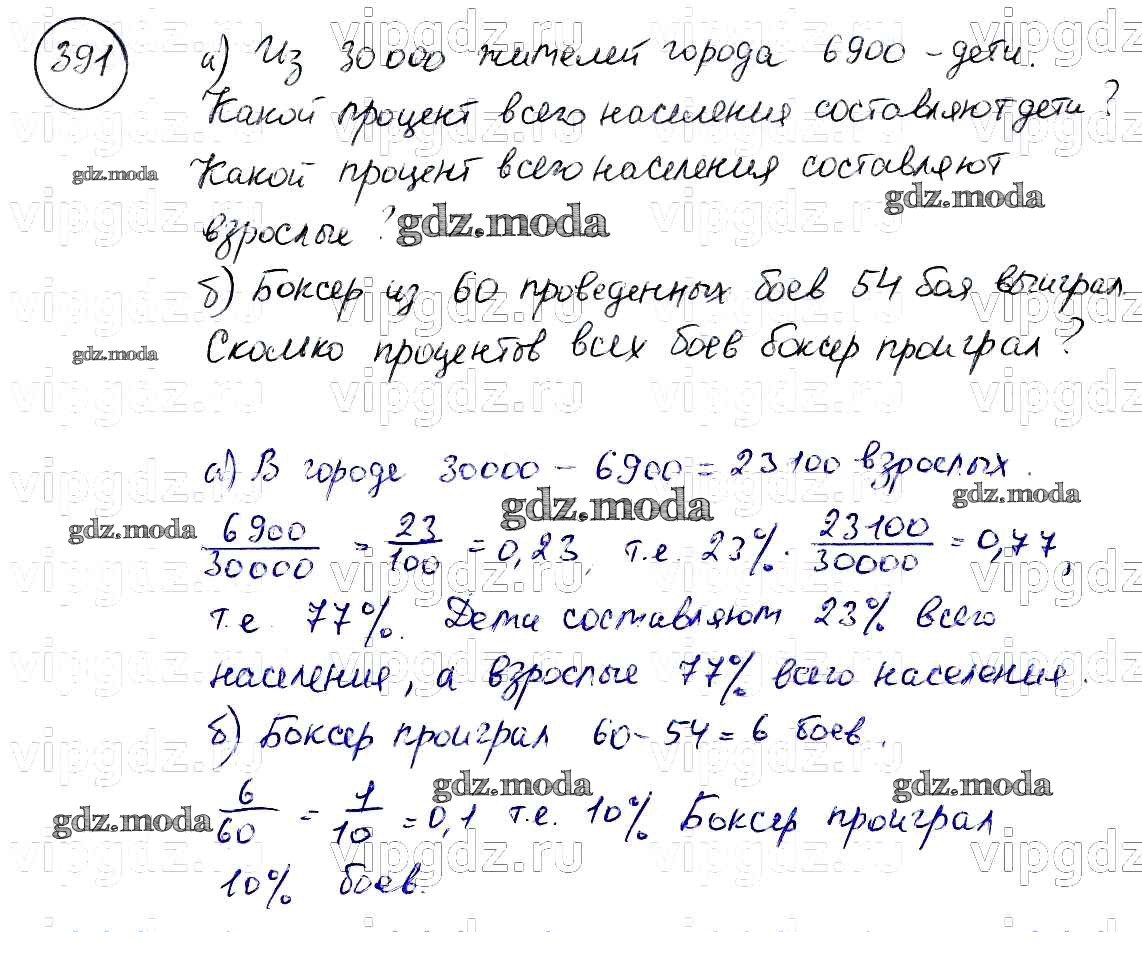 391
а) Из 30000 жителей города 6900 - дети.
Какой процент всего населения составляют дети?
Какой процент всего населения составляют
взрослые?
б) Боксер из 60 проведенных боев 54 боя выиграл.
Сколько процентов всех боев боксер проиграл?
а) В городе 30000 - 6900 = 23100 взрослых.
6900/30000 = 23/100 = 0,23, т.е. 23%. 23100/30000 = 0,77,
т.е. 77%. Дети составляют 23% всего
населения, а взрослые 77% всего населения.
б) Боксер проиграл 60 - 54 = 6 боев.
6/60 = 1/10 = 0,1 т.е. 10% Боксер проиграл
10% боев.
gdz.moda
gdz.moda
gdz.moda
gdz.moda
gdz.moda
gdz.moda
gdz.moda
gdz.moda
gdz.moda
gdz.moda
gdz.moda
vipgdz.ru